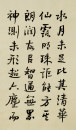 水月未足比其清華
仙露明珠詎能方其
朗潤故以智通無累
神測未形超六塵而